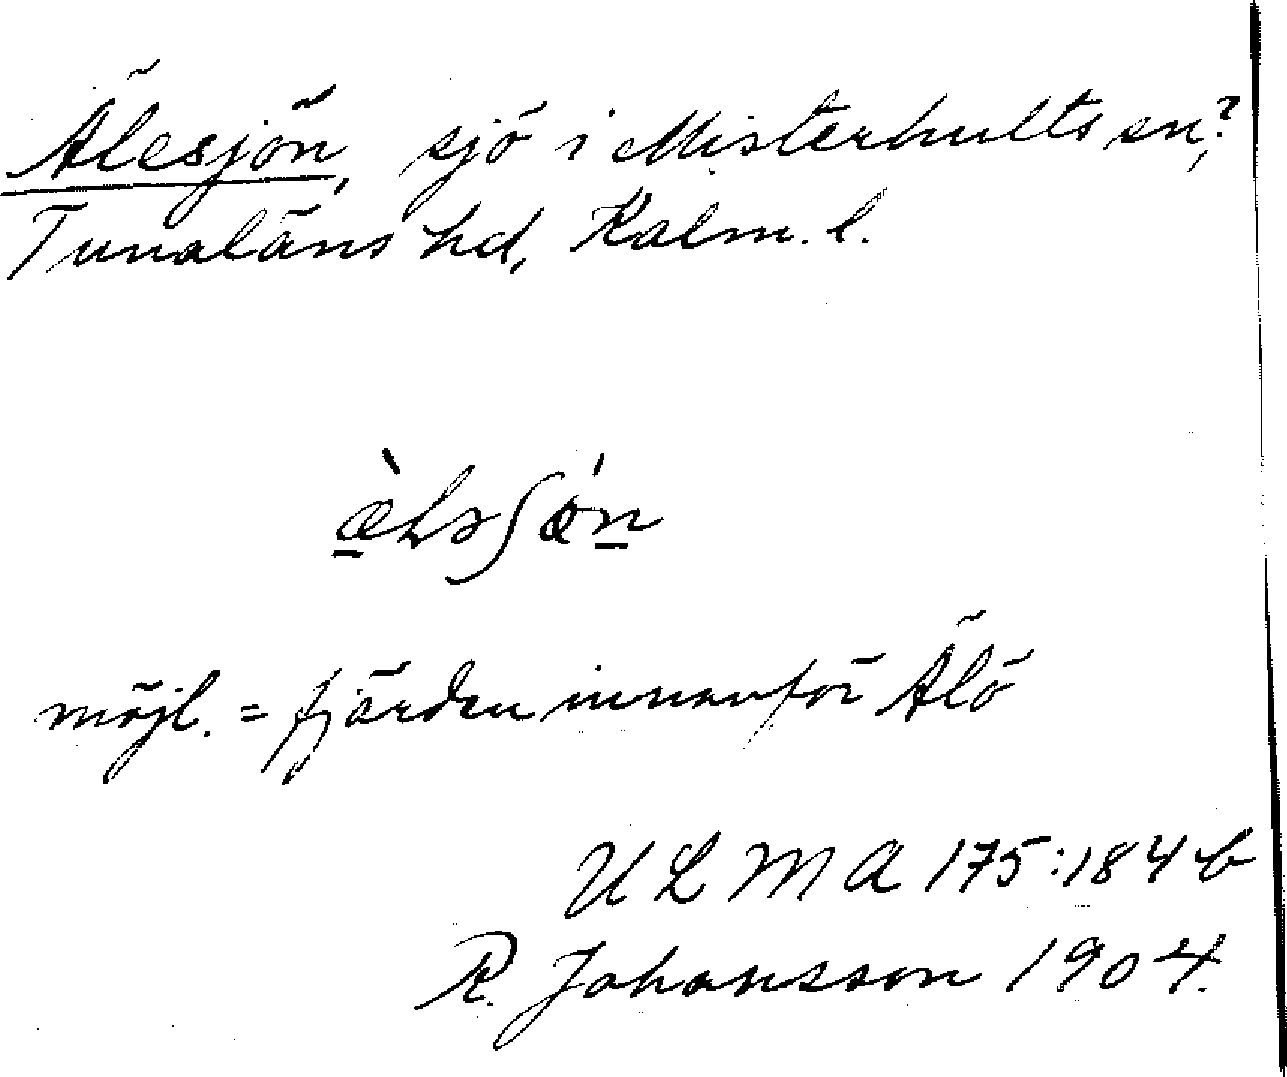 Älesjön, sjö i Misterhults sn,?
Tunaläns hd, Kalm. l.
möjl. = fjärden innanför Älö
ULMA 175:184 b
R. Johansson 1904.